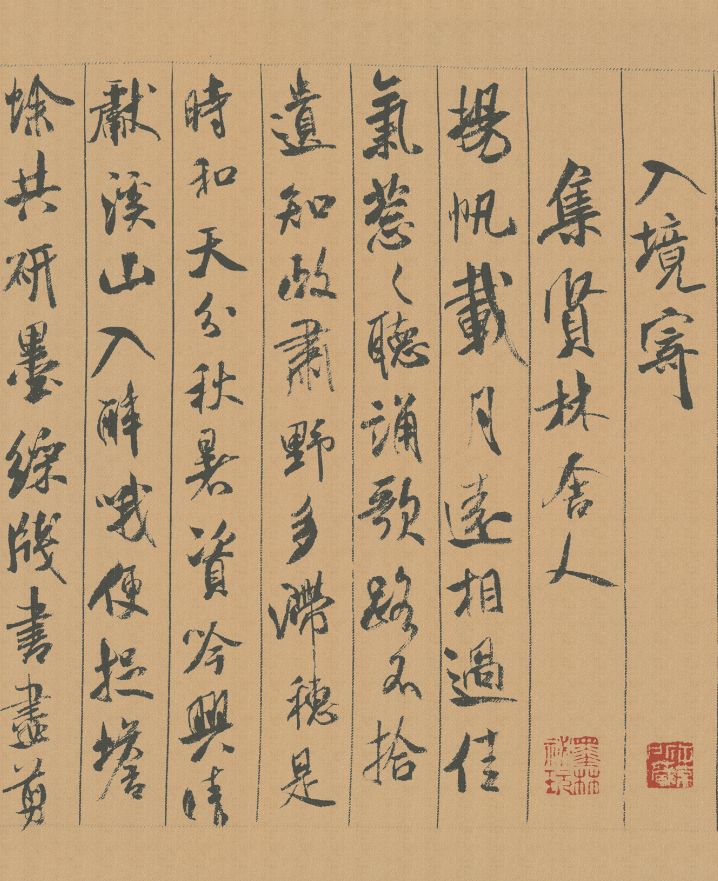 入境寄
集賢林舍人
揚帆載月遠相過佳
氣葱〻聽誦歌路不拾
遺知政肅野多滯穗是
時和天分秋暑資吟興晴
獻溪山入醉哦便捉蟾
蜍共研墨綵牋書盡剪
墨林祕玩